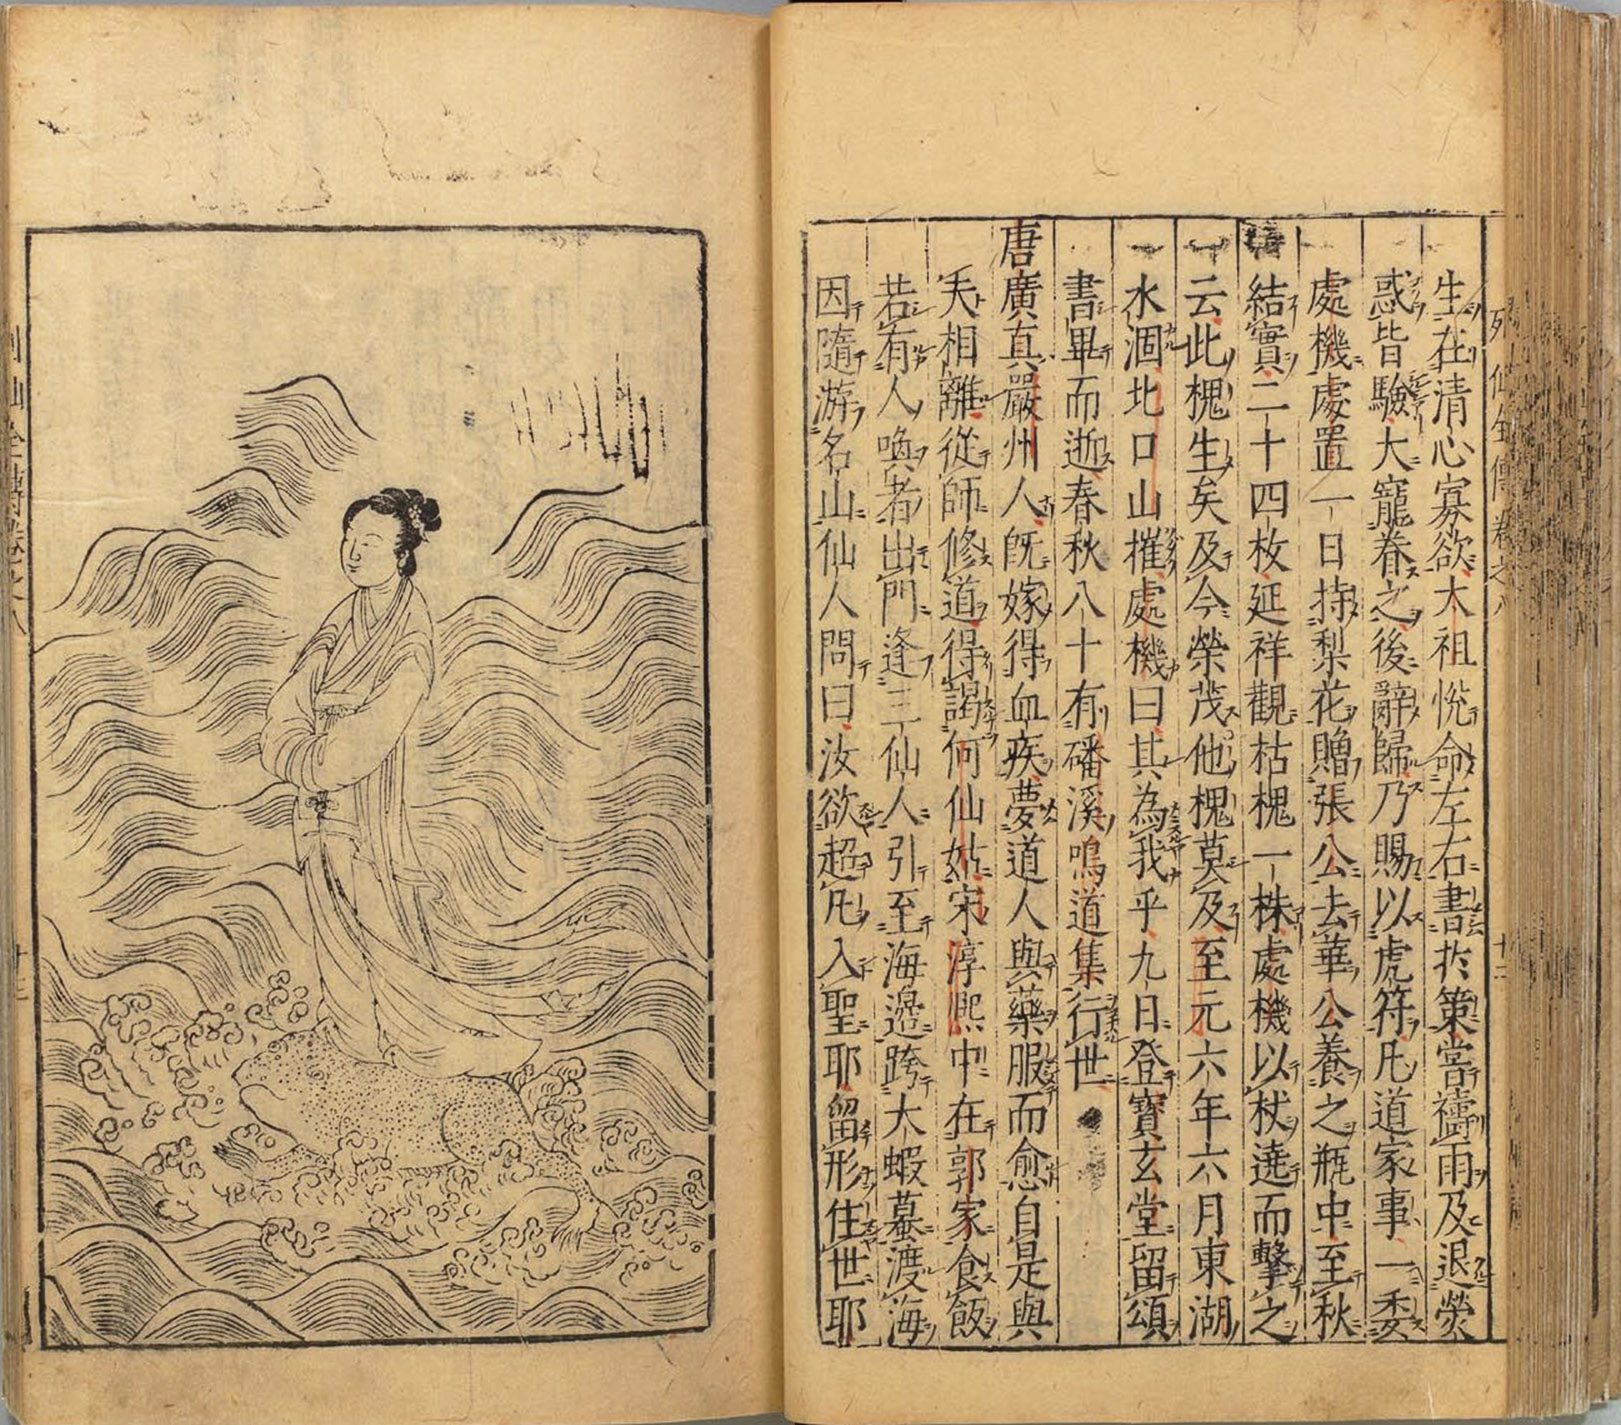 生在清心寡欲太祖悅命左右書於策當禱雨及退熒
惑皆驗大寵眷之後辭歸乃賜以虎符凡道家事一委
處機處置一日持梨花贈張公去華公養之瓶中至秋
結實二十四枚延祥觀枯槐一株處機以杖遶而擊之
云此槐生矣及今榮茂他槐莫及至元六年六月東湖
水涸北口山摧處機曰其為我乎九日登寶玄堂留頌
書畢而逝春秋八十有磻溪鳴道集行世
唐廣真嚴州人既嫁得血疾夢道人與藥服而愈自是與
夫相離從師修道得謁何仙姑宋淳熈中在郭家食飯
若有人喚者出門逢三仙人引至海邉跨大蝦蟇渡海
因隨游名山仙人問曰汝欲超凡入聖耶留形住世耶
列仙全傳卷之八
十三